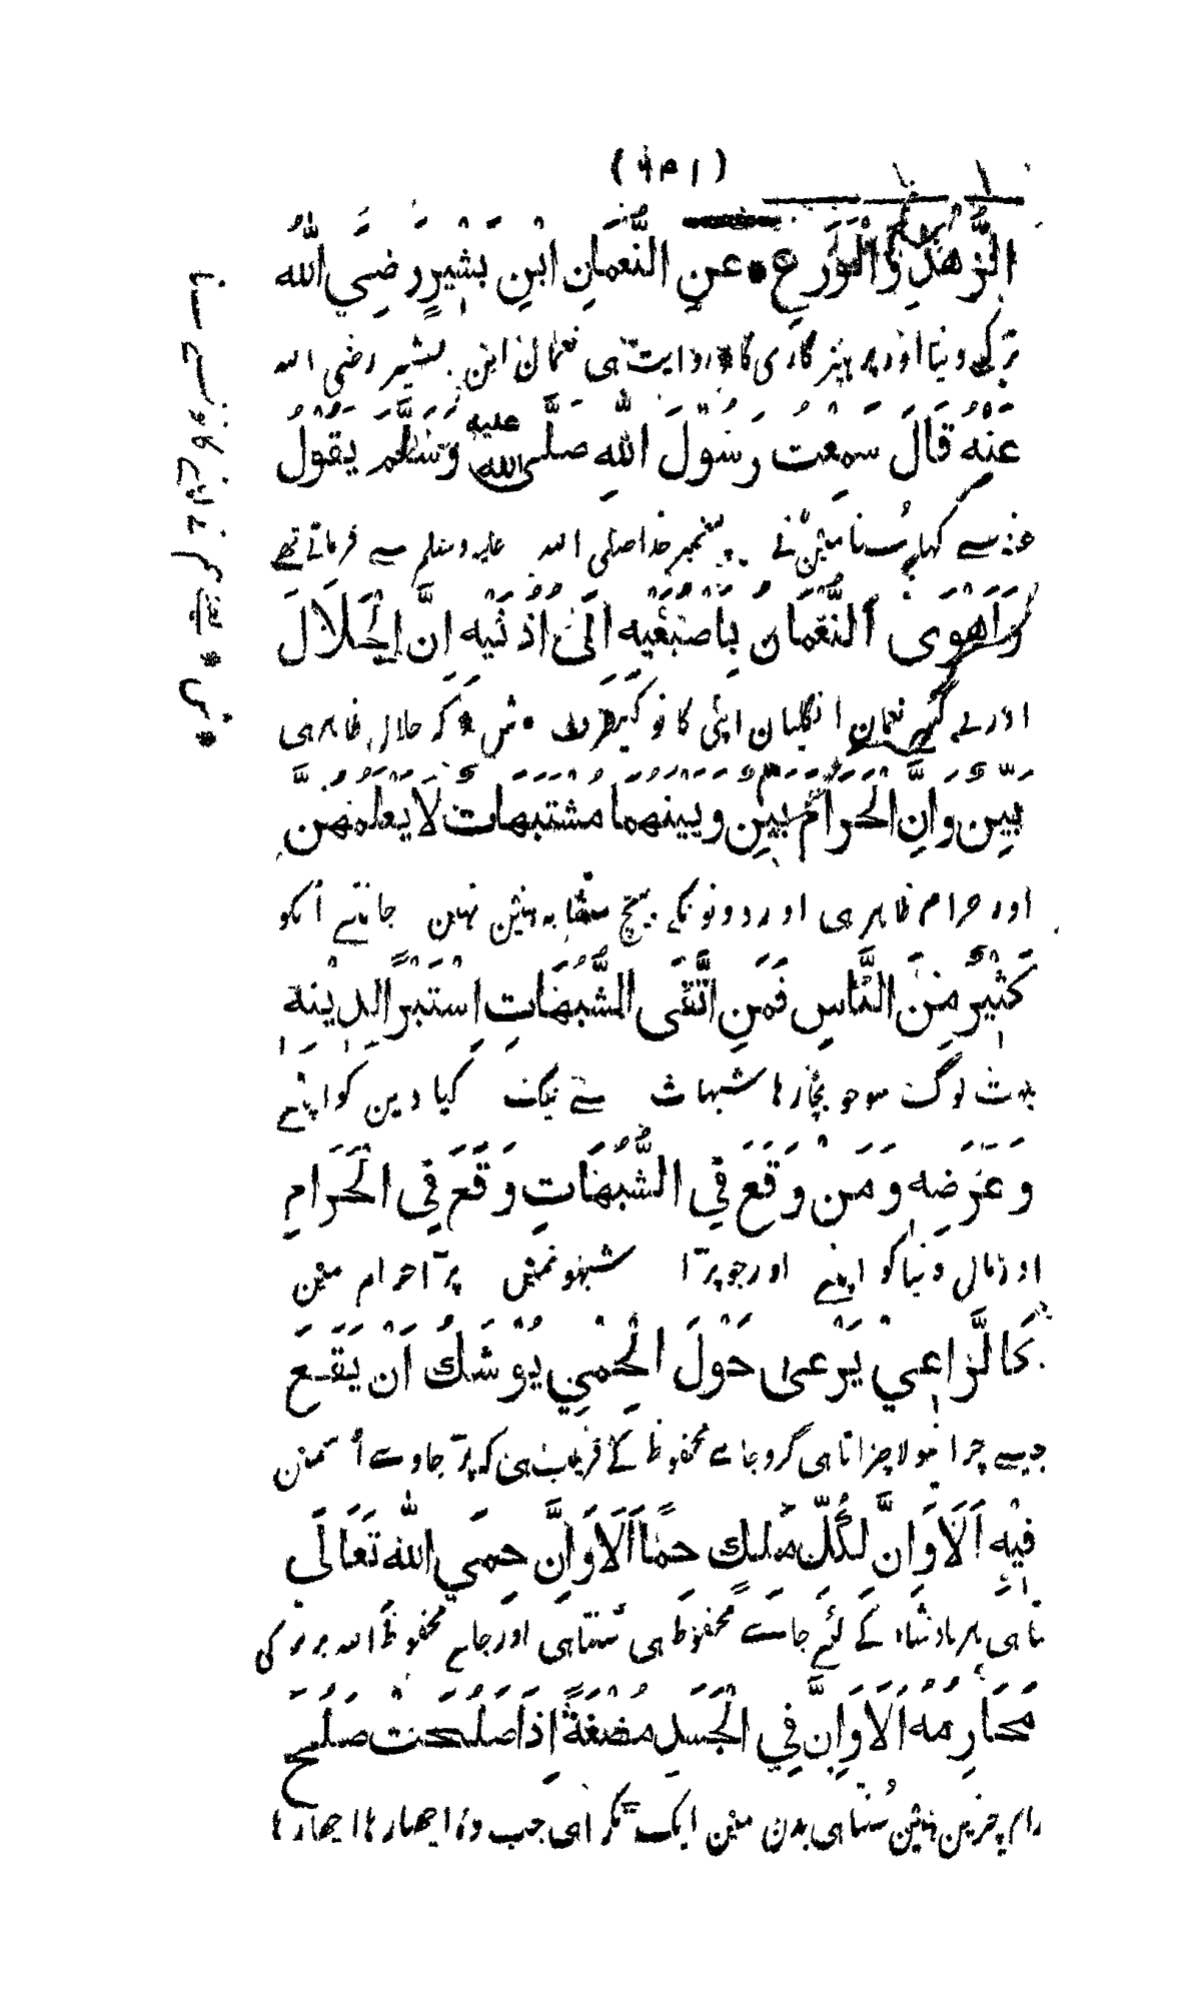 الزُّهْدِ وَالْوَرَعِ * عَنِ النُّعْمَانِ ابْنِ بَشِيْرٍ رَضِيَ اللّٰهُ
ترکِ دنیا اور پرہیزگاری کا * روایت ہی نعمان ابن بشیر رضی اللہ
عَنْهُ قَالَ سَمِعْتُ رَسُوْلَ اللّٰهِ صَلَّى اللّٰهُ عَلَيْهِ وَسَلَّمَ يَقُوْلُ
عنہ سے کہا سُنا مین نے پیغمبر خدا صلی اللہ علیہ وسلم سے فرماتے تھے
وَاَهْوَى النُّعْمَانُ بِاُصْبُعَيْهِ اِلَى اُذُنَيْهِ اِنَّ الْحَلَالَ
اور لے گئے نعمان انگلیان اپنی کانو کیطرف * ش * کہ حلال ظاہر ہی
بَيِّنٌ وَاِنَّ الْحَرَامَ بَيِّنٌ وَبَيْنَهُمَا مُشْتَبِهَاتٌ لَا يَعْلَمُهُنَّ
اور حرام ظاہر ہی اور دونونکے بیچ متشابہ ہین نہین جانتے اُنکو
كَثِيْرٌ مِنَ النَّاسِ فَمَنِ اتَّقَى الشُّبُهَاتِ اِسْتَبْرَأَ لِدِيْنِهٖ
بہت لوگ سو جو بچا رہا شبہات سے نیک کیا دین کو اپنے
وَعِرْضِهٖ وَمَنْ وَقَعَ فِي الشُّبُهَاتِ وَقَعَ فِي الْحَرَامِ
اور مال دنیا کو اپنے اور جو پڑا شبہونمین پڑا حرام مین
كَالرَّاعِيْ يَرْعٰى حَوْلَ الْحِمٰى يُوْشَكُ اَنْ يَقَعَ
جیسے چرانیولا چراتا ہی گرد جاے محفوظ کے قریب ہی کہ پڑ جاوے اُسمین
فِيْهِ اَلَا وَاِنَّ لِكُلِّ مَلِكٍ حِمًا اَلَا وَاِنَّ حِمَى اللّٰهِ تَعَالٰى
ہر بادشاہ کے لئے جاے محفوظ ہی سُنتا ہی اور جاے محفوظ اللہ کی
مَحَارِمُهٗ اَلَا وَاِنَّ فِي الْجَسَدِ مُضْغَةً اِذَا صَلَحَتْ صَلُحَ
چیزین ہین سُنتا ہی بدن مین ایک ٹکرا ہی جب وہ اچھا رہا اچھا رہا